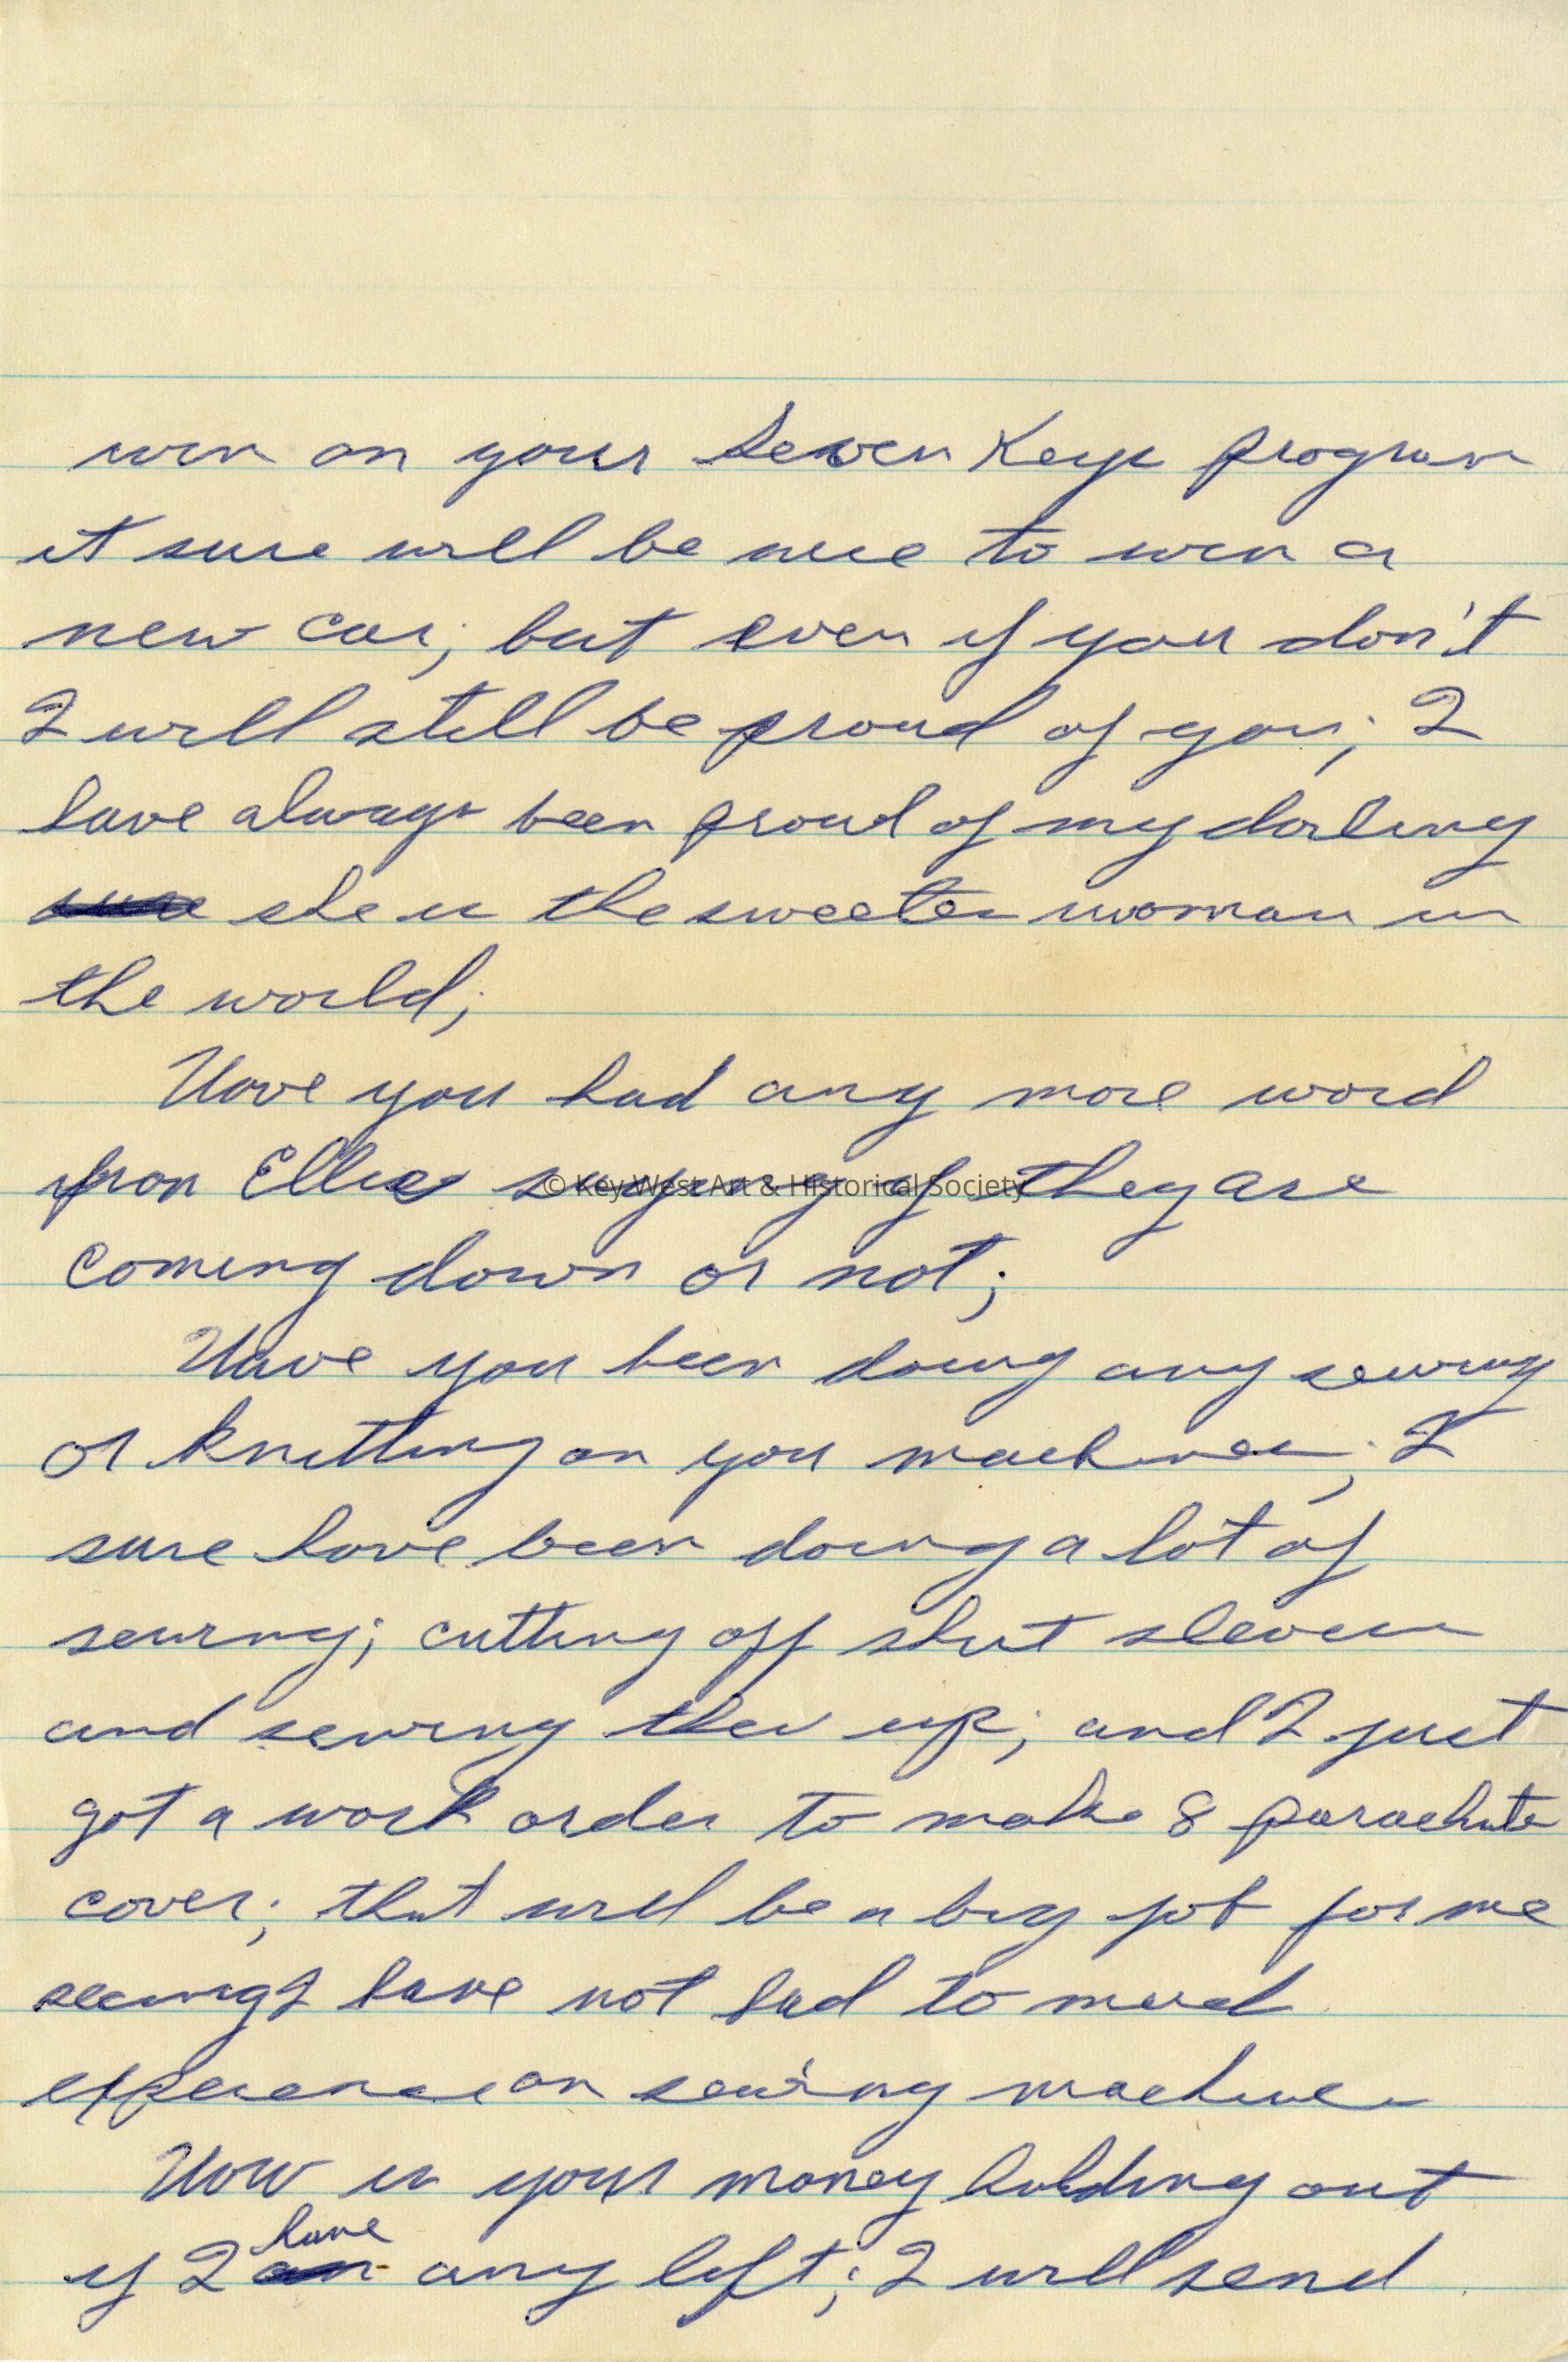 win on your Seven Keys program
it sure will be nice to win a
new car; but even if you don't
I will still be proud of you; I
have always been proud of my darling
she is the sweetes woman in
the world;
Have you had any more word
from Ellie saying if they are
coming down or not;
Have you been doing any sewing
or knitting on you machines; I
sure have been doing a lot of
sewing; cutting off shirt sleves
and sewing them up; and I just
got a work order to make 8 parachute
cover; that will be a big job for me
seeing I have not had to much
experience on sewing machines
How is your money holding out
if I have any left; I will send
© Key West Art & Historical Society